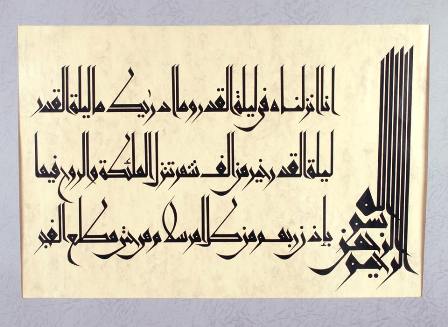 بسم الله الرحمن الرحيم
انا انزلناه في ليلة القدر وما ادريك ما ليلة القدر
ليلة القدر خير من الف شهر تنزل الملئكة والروح فيها
باذن ربهم من كل امر سلام هي حتى مطلع الفجر